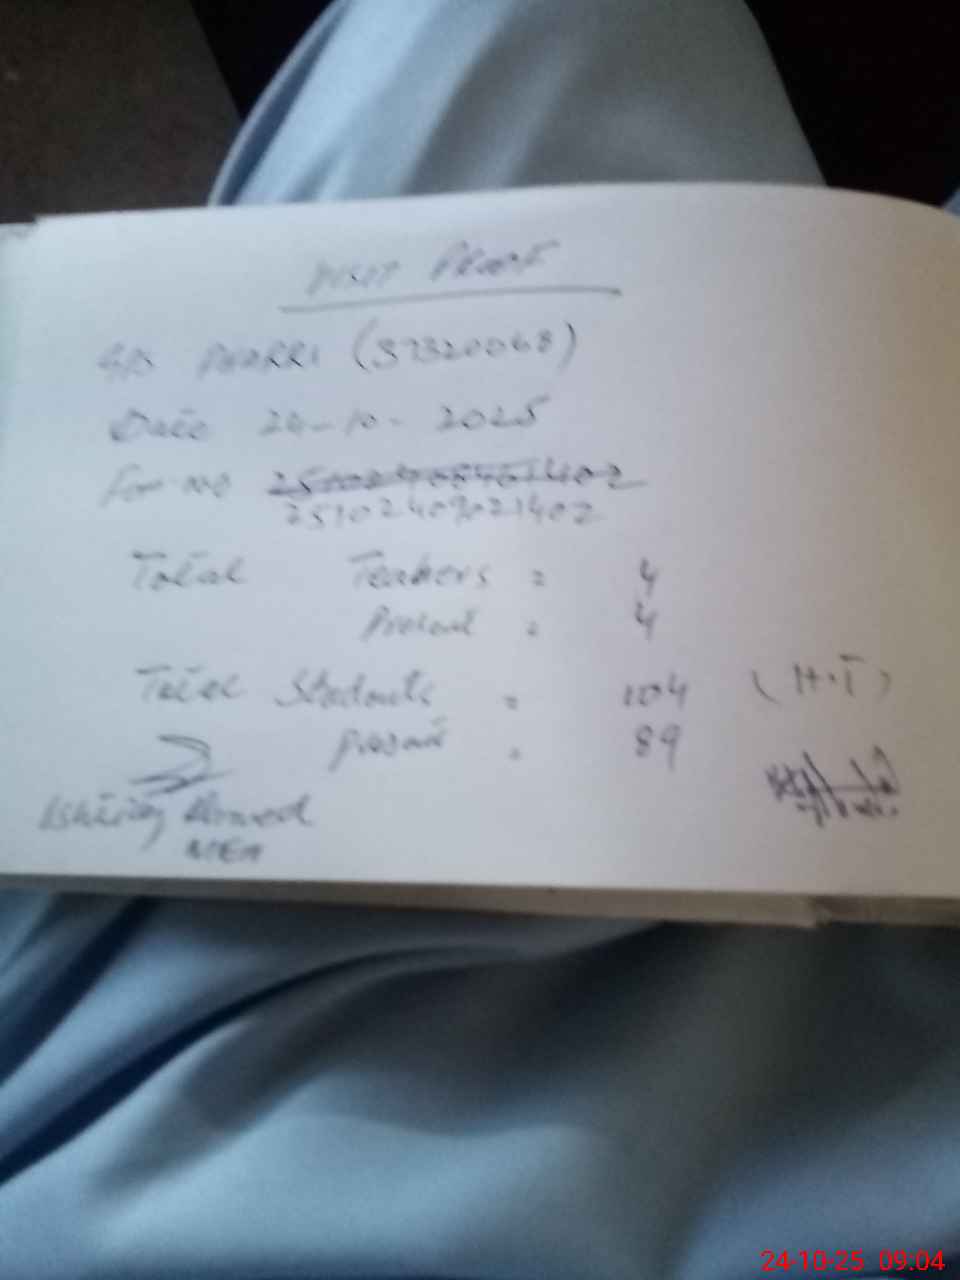 VISIT PROOF
GPS DHARRI (37320048)
Date 24-10-2025
Form no
25102409021402
Total Teachers = 4
Present = 4
Total Students = 104 (H.T)
present = 89
Ishtiaq Ahmed
MEA
24-10-25 09:04